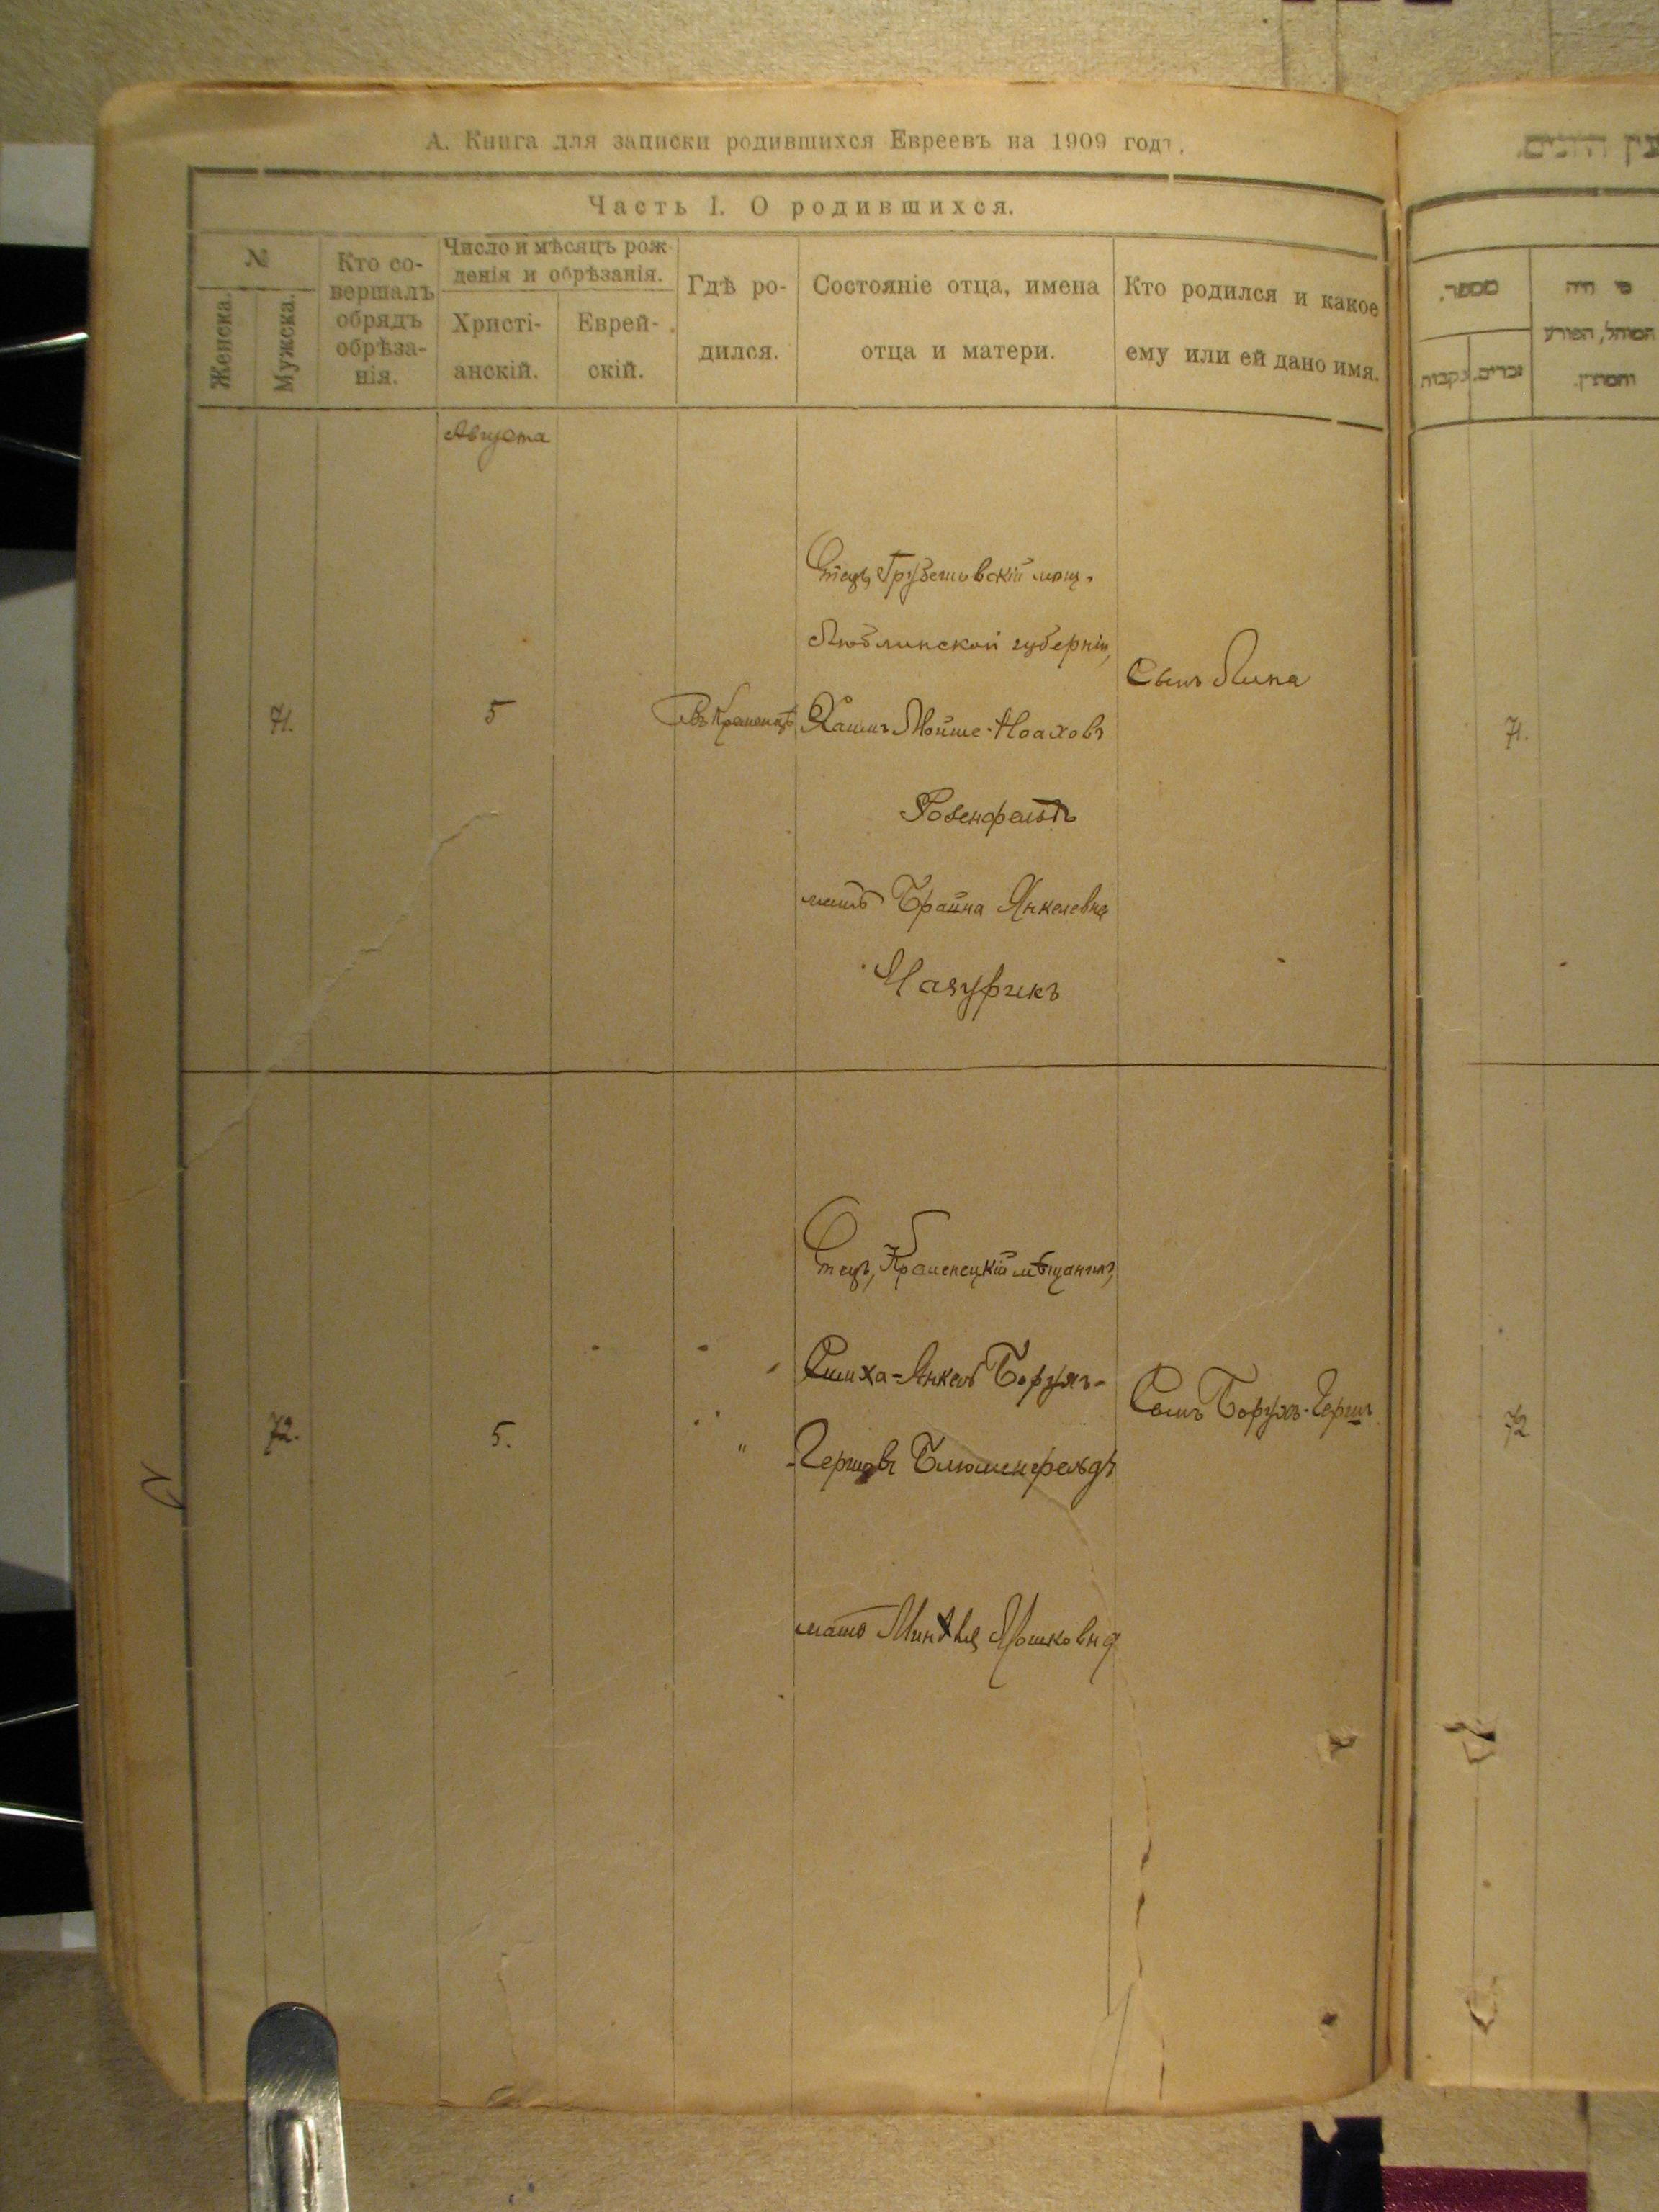 А. Книга для записки родившихся Евреевъ на 1909 годъ.
Часть I. О родившихся.
№
Женска.
Мужска.
Кто со-
вершалъ
обрядъ
обрѣза-
нія.
Число и мѣсяцъ рож-
денія и обрѣзанія.
Христі-
анскій.
Еврей-
скій.
Гдѣ ро-
дился.
Состояніе отца, имена
отца и матери.
Кто родился и какое
ему или ей дано имя.
Августа
71.
5
Въ Кременцѣ
Отецъ, Грубешовскій мѣщ.
Люблинской губерніи,
Хаимъ Мойше-Ноаховъ
Розенфельдъ
мать Брайна Янкелевна
Мазурикъ
Сынъ Липа
72.
5.
"
Отецъ, Кременецкій мѣщанинъ,
Симха-Янкель Борухъ-
-Гершовъ Блюменфельдъ
мать Мошковна
Сынъ Борухъ-Герш
מספר.
זכרים.
נקבות
מי היה
המוהל, הפורע
והמוצץ.
71.
72